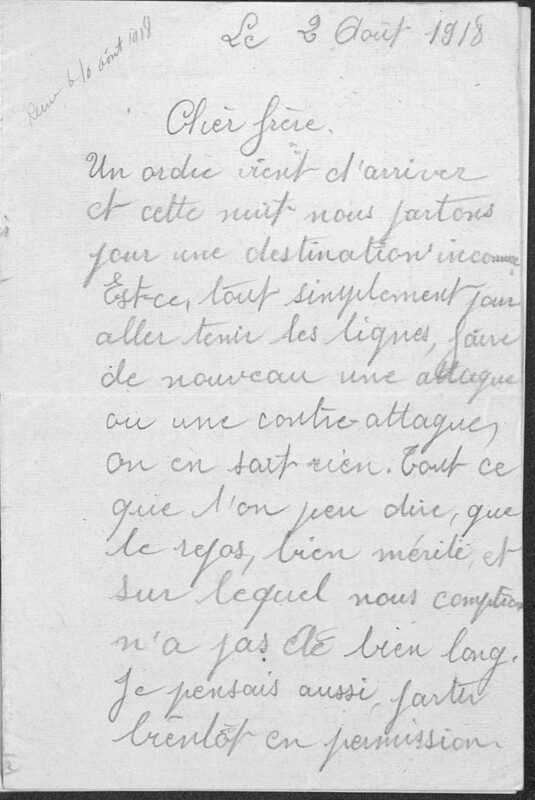 Le 2 Août 1918
6/0 août 1918
Cher frère.
Un ordre vient d'arriver
et cette nuit nous partons
pour une destination inconnue
Est-ce, tout simplement pour
aller tenir les lignes, faire
de nouveau une attaque
ou une contre-attaque,
on en sait rien. Tout ce
que l'on peu dire, que
le repos, bien mérité, et
sur lequel nous comptions
n'a pas été bien long.
Je pensais aussi, partir
bientôt en permission.